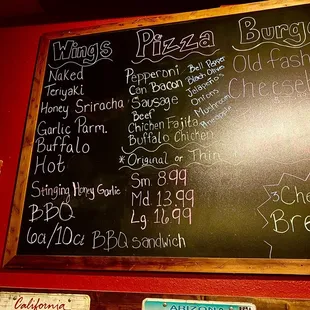 Wings
Naked
Teriyaki
Honey Sriracha
Garlic Parm.
Buffalo
Hot
Stinging Honey Garlic
BBQ
6a/10a BBQ sandwich
Pizza
Pepperoni
Can Bacon
Sausage
Beef
Chicken Fajita
Buffalo Chicken
Bell Pepper
Black Olives
Jalapeño's
Onions
Mushroom
Pineapple
*Original or Thin
Sm 8.99
Md 13.99
Lg 16.99
Burge
Old fash
Cheese
3 Che
Bre
California
ARIZONA